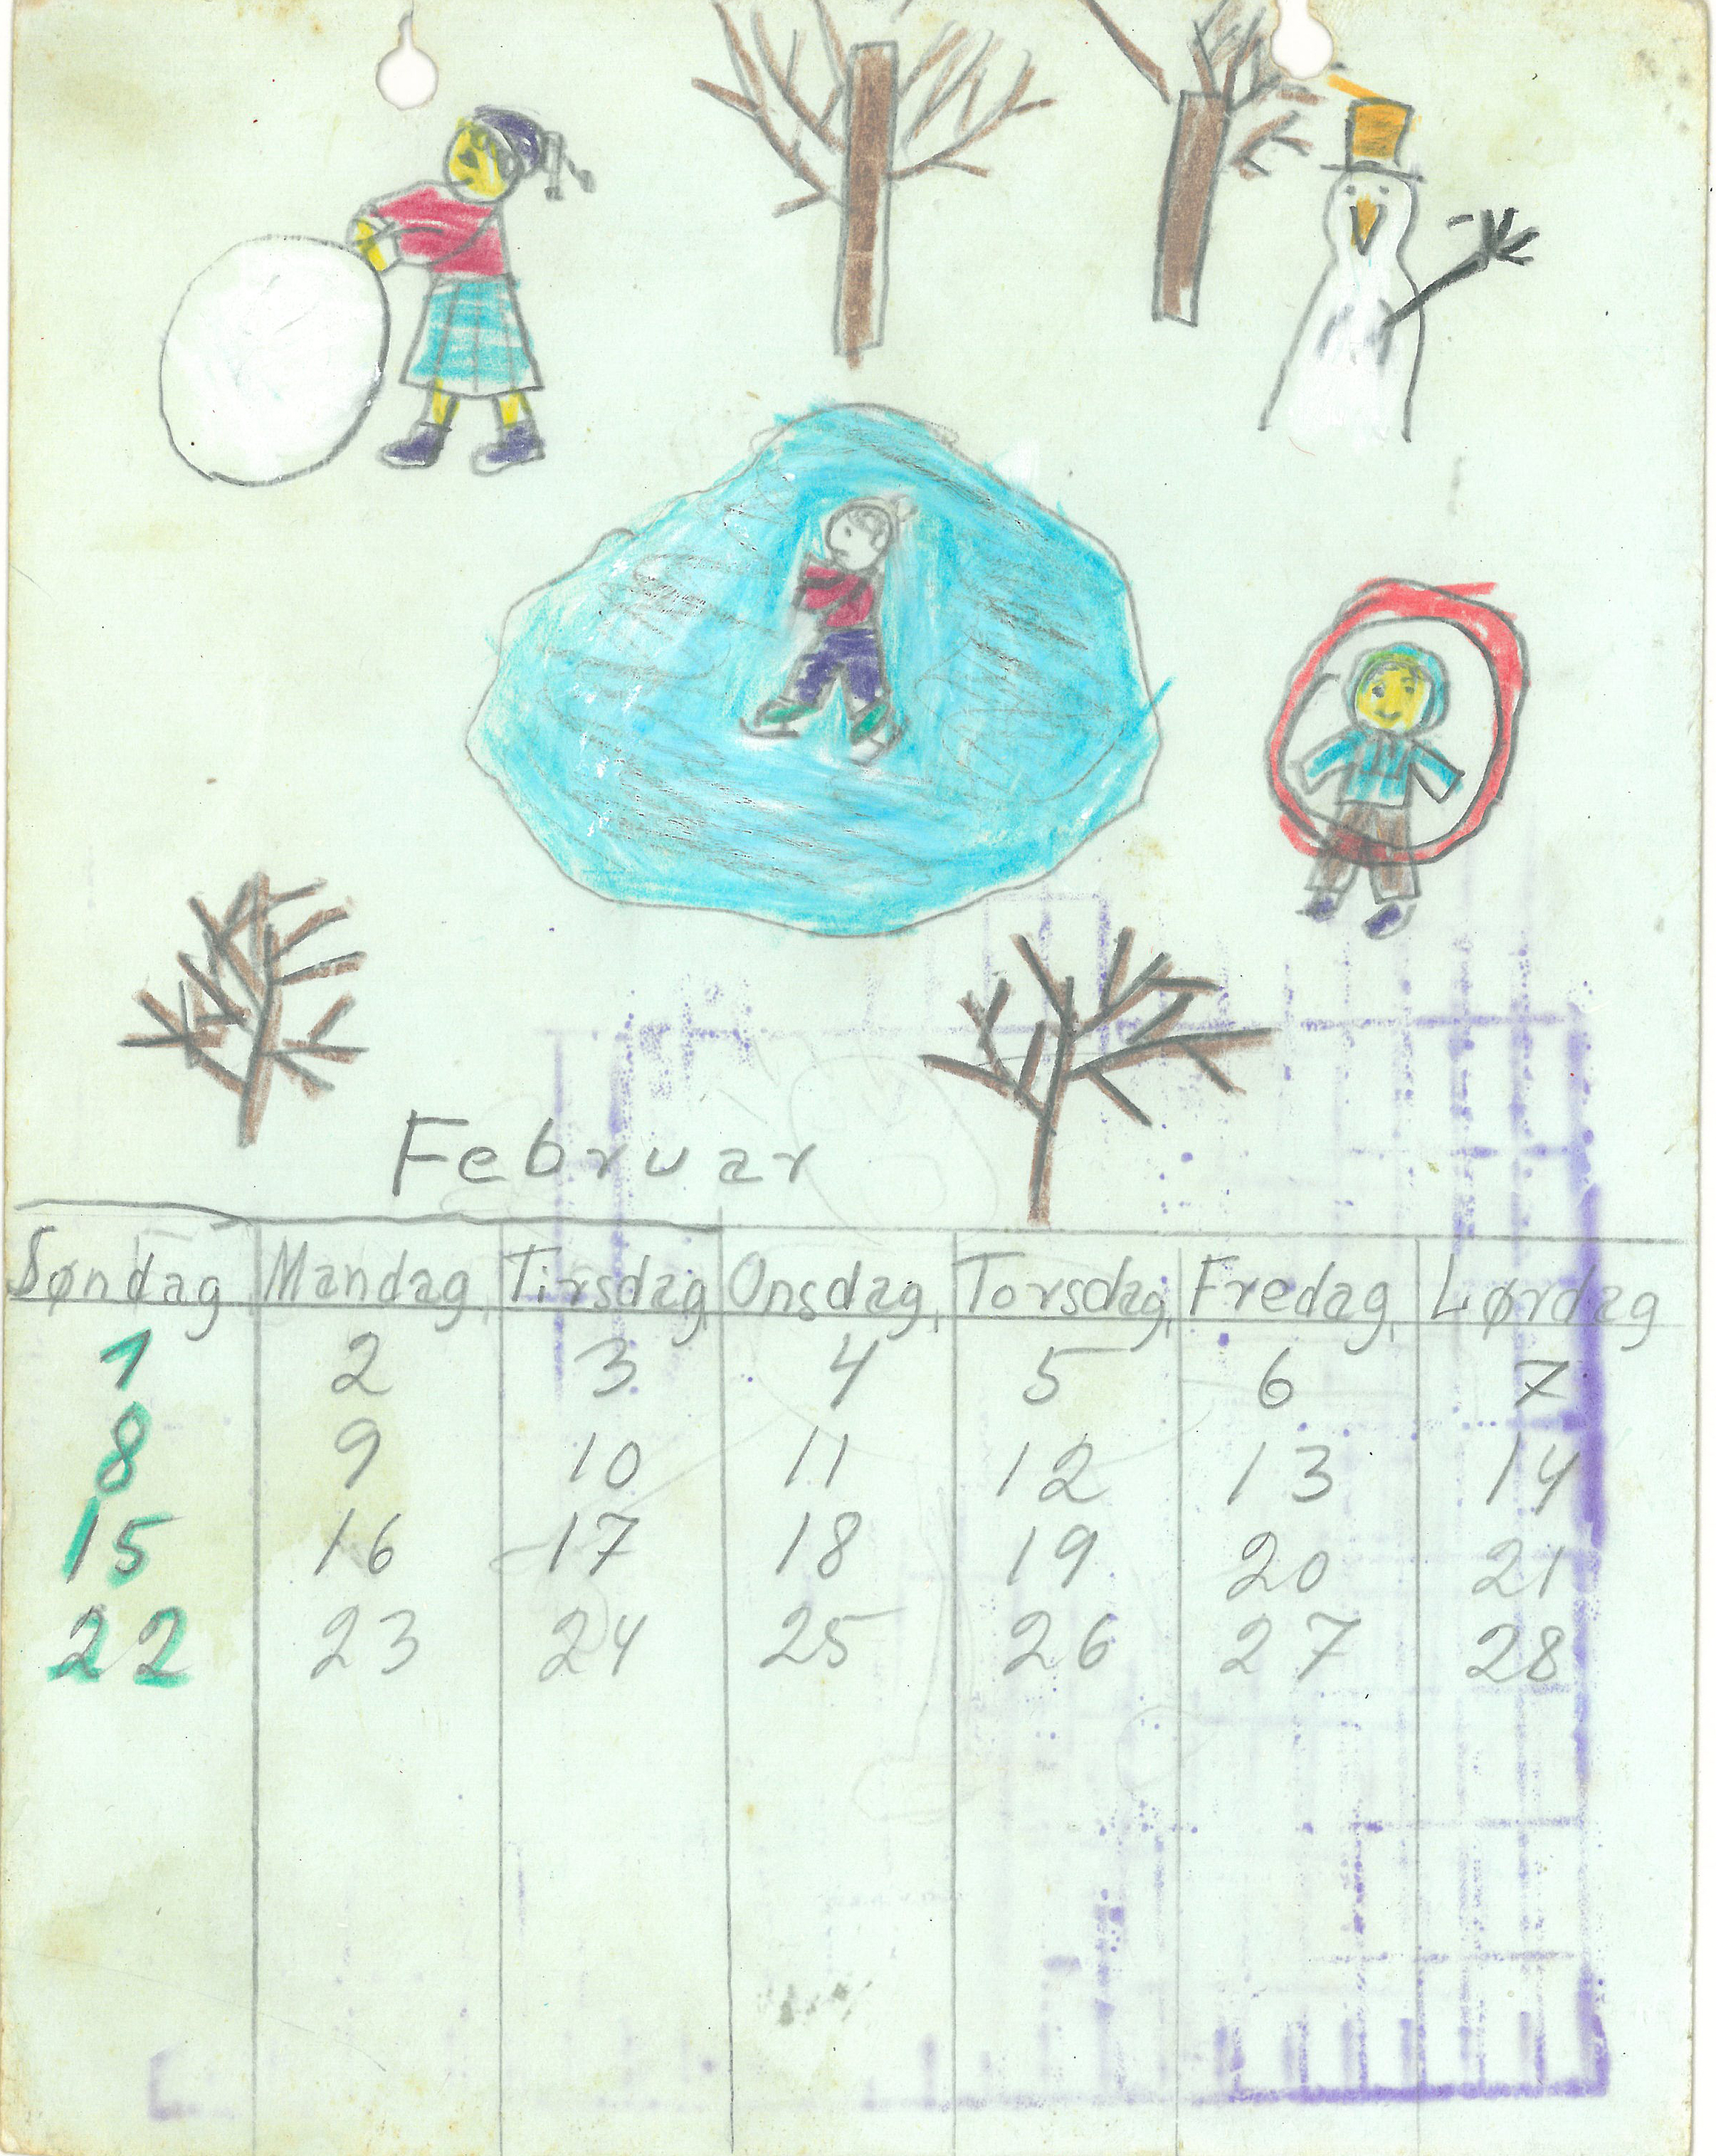 Februar
Søndag Mandag Tirsdag Onsdag Torsdag Fredag Lørdag
1 2 3 4 5 6 7
8 9 10 11 12 13 14
15 16 17 18 19 20 21
22 23 24 25 26 27 28